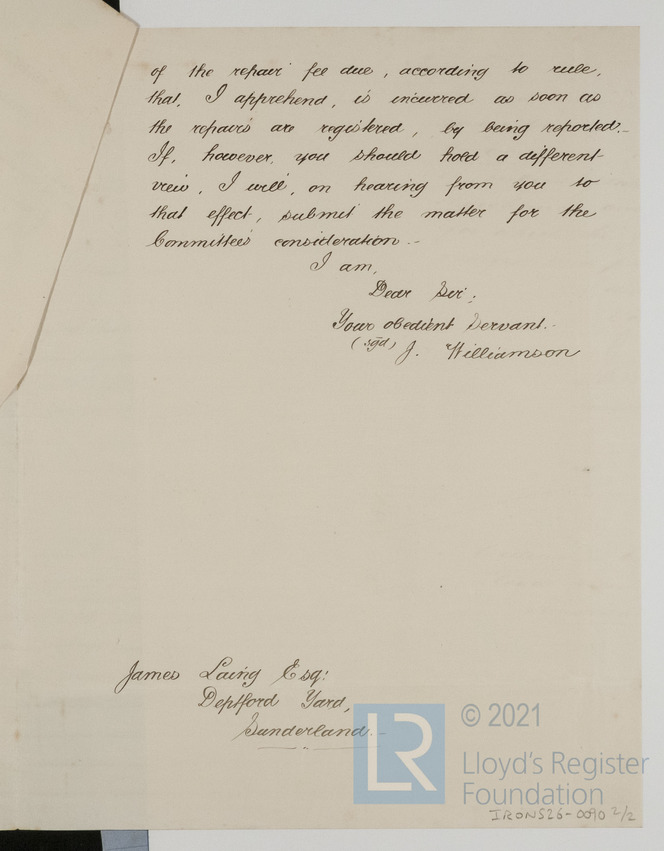 of the repair fee due, according to rule,
that, I apprehend, is incurred as soon as
the repairs are registered, by being reported.-
If, however, you should hold a different
view, I will, on hearing from you to
that effect, submit the matter for the
Committee's consideration.-
I am,
Dear Sir,
Your obedient Servant.
(sgd) J. Williamson
James Laing Esq:
Deptford Yard,
Sunderland.-
© 2021
LR
Lloyd's Register
Foundation
IRONS26-0090 2/2